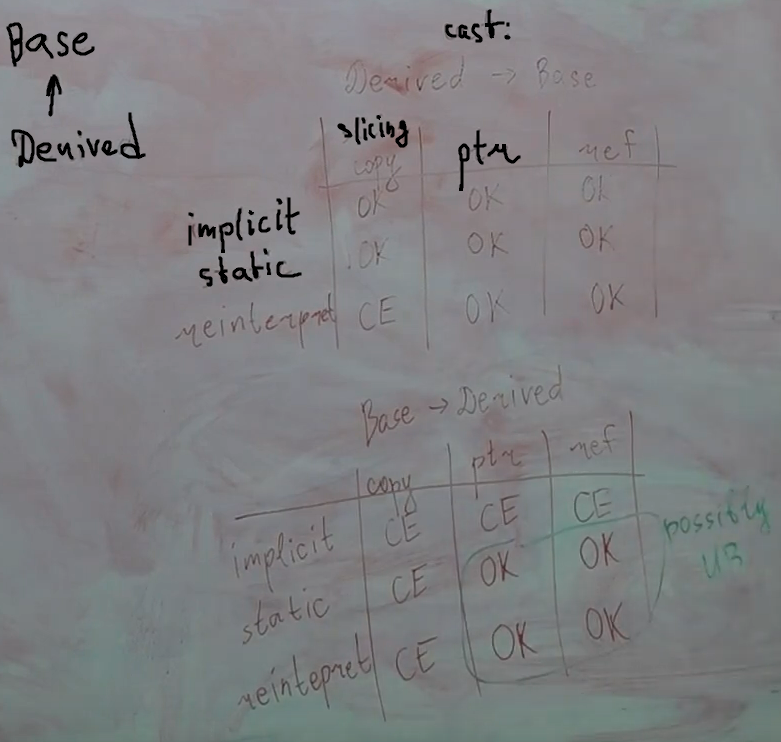 Base
Derived
cast:
Derived → Base
slicing
copy ptr ref
implicit OK OK OK
static OK OK OK
reinterpret CE OK OK
Base → Derived
copy ptr ref
implicit CE CE CE
static CE OK OK
reintepret CE OK OK
possibly
UB